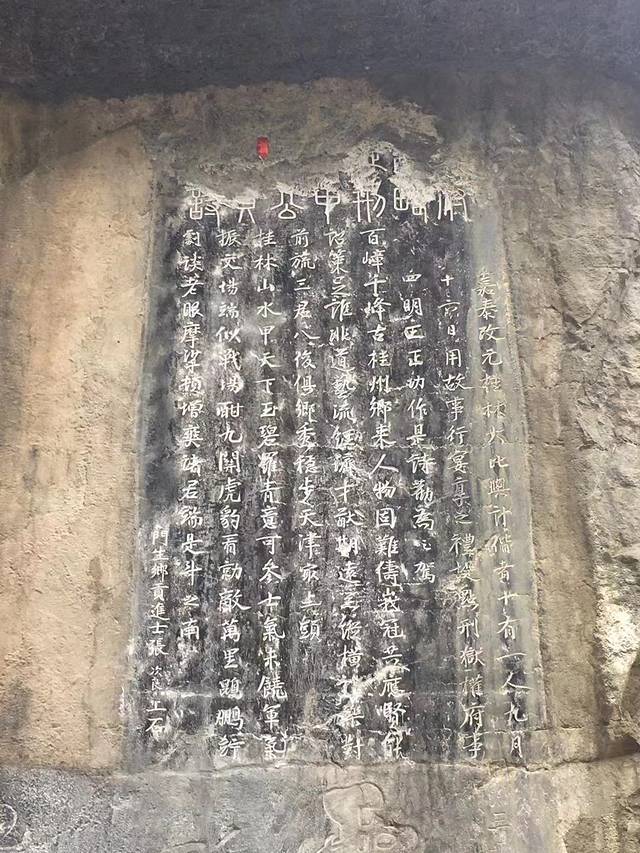 刑中公大詩
嘉泰改元桂林大比與計偕者十有一人九月
十六日用故事行宴享之禮提點刑獄權府事
四明王正功作是詩勸為之駕
百嶂千峰古桂州鄉來人物固難儔峩冠共應賢能
詔策足誰非道藝流經濟才猷期遠器縱橫禮樂對
前旒三君八俊俱鄉秀穩步天津最上頭
桂林山水甲天下玉碧羅青意可參士氣未饒軍氣
振文場端似戰場酣九關虎豹看勍敵萬里鵾鵬佇
劇談老眼摩挲頓增爽諸君端是斗之南
門生鄉貢進士張次良上石